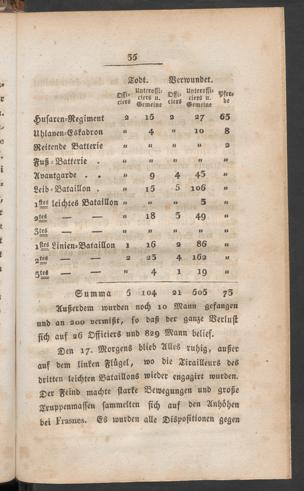 55
Todt. Verwundet.
Offi-ciers Unteroffi-ciers u. Gemeine Offi-ciers Unteroffi-ciers u. Gemeine Pfer-de
Husaren-Regiment 2 15 2 27 65
Uhlanen-Eskadron „ 4 „ 10 8
Reitende Batterie „ „ „ „ 2
Fuß-Batterie . „ „ „ „ „
Avantgarde . . „ 9 4 45 „
Leib-Bataillon . „ 15 5 106 „
1stes leichtes Bataillon „ „ „ 5 „
2tes — — „ 18 3 49 „
3tes — — „ „ „ „ „
1stes Linien-Bataillon 1 16 2 86 „
2tes — — 2 23 4 162 „
3tes — — „ 4 1 19 „
Summa 5 104 21 505 75
Außerdem wurden noch 10 Mann gefangen
und an 200 vermißt, so daß der ganze Verlust
sich auf 26 Officiers und 829 Mann belief.
Den 17. Morgens blieb Alles ruhig, außer
auf dem linken Flügel, wo die Tirailleurs des
dritten leichten Bataillons wieder engagirt wurden.
Der Feind machte starke Bewegungen und große
Truppenmassen sammelten sich auf den Anhöhen
bei Frasnes. Es wurden alle Dispositionen gegen